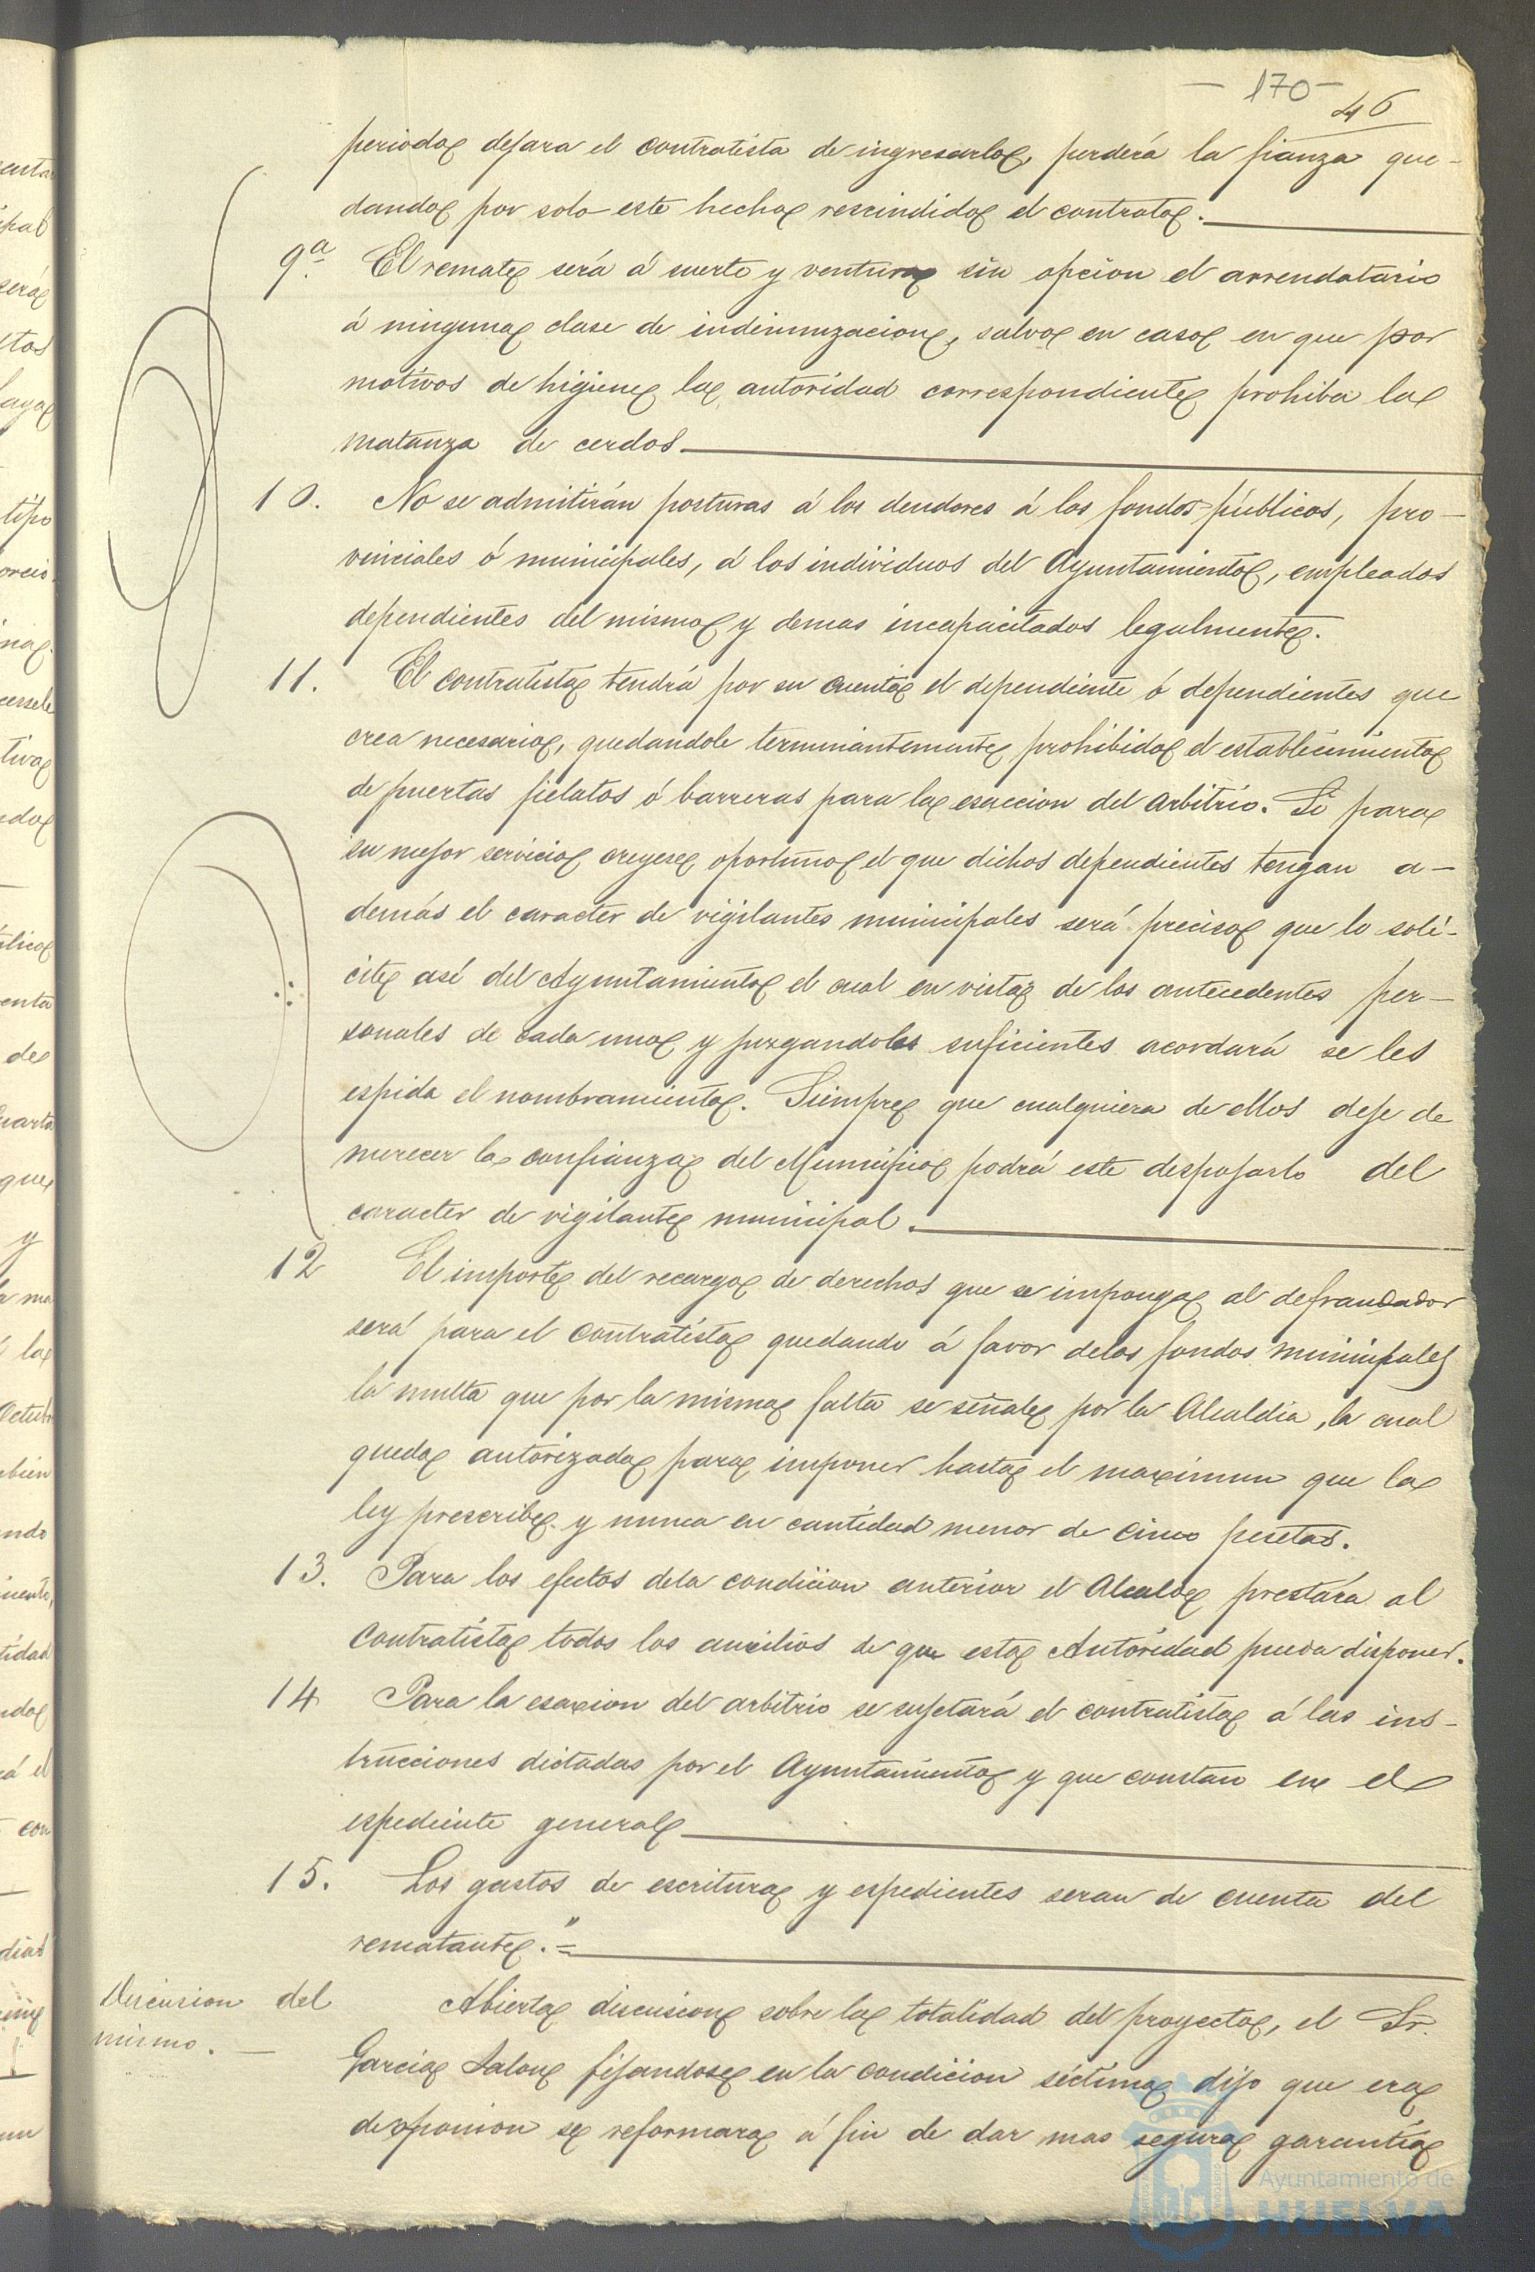 - 170 -
46
periodo dejara el contratista de ingresarlo, perderá la fianza que-
dando por solo este hecho rescindido el contrato.
9ª El remate será á suerte y ventura sin opcion el arrendatario
á ninguna clase de indemnizacion, salvo en caso en que por
motivos de higiene la autoridad correspondiente prohiba la
matanza de cerdos.
10. No se admitirán posturas á los deudores á los fondos públicos, pro-
vinciales ó municipales, á los individuos del Ayuntamiento, empleados
dependientes del mismo y demas incapacitados legalmente.
11. El contratista tendrá por su cuenta el dependiente ó dependientes que
crea necesario, quedandole terminantemente prohibido el establecimiento
de puertas fielatos ó barreras para la esaccion del arbitrio. Si para
su mejor servicio creyese oportuno el que dichos dependientes tengan a-
demás el caracter de vigilantes municipales será preciso que lo soli-
cite así del Ayuntamiento el cual en vista de los antecedentes per-
sonales de cada uno y juzgandolos suficientes acordará se les
espida el nombramiento. Siempre que cualquiera de ellos deje de
merecer la confianza del Municipio podrá este despojarlo del
caracter de vigilante municipal.
12 El importe del recargo de derechos que se imponga al defraudador
será para el contratista quedando á favor de los fondos municipales
la multa que por la misma falta se señale por la Alcaldia, la cual
queda autorizada para imponer hasta el maximun que la
ley prescribe y nunca en cantidad menor de cinco pesetas.
13. Para los efectos de la condicion anterior el Alcalde prestára al
contratista todos los aucilios de que esta Autoridad pueda disponer.
14 Para la esaccion del arbitrio se sujetará el contratista á las ins-
trucciones dictadas por el Ayuntamiento y que constan en el
espediente general
15. Los gastos de escritura y espedientes seran de cuenta del
rematante." =
Discusion del
mismo. -
Abierta discusion sobre la totalidad del proyecto, el Sr.
Garcia Jalon fijandose en la condicion séctima dijo que era
de oponion se reformara á fin de dar mas segura garantía
Ayuntamiento de
HUELVA